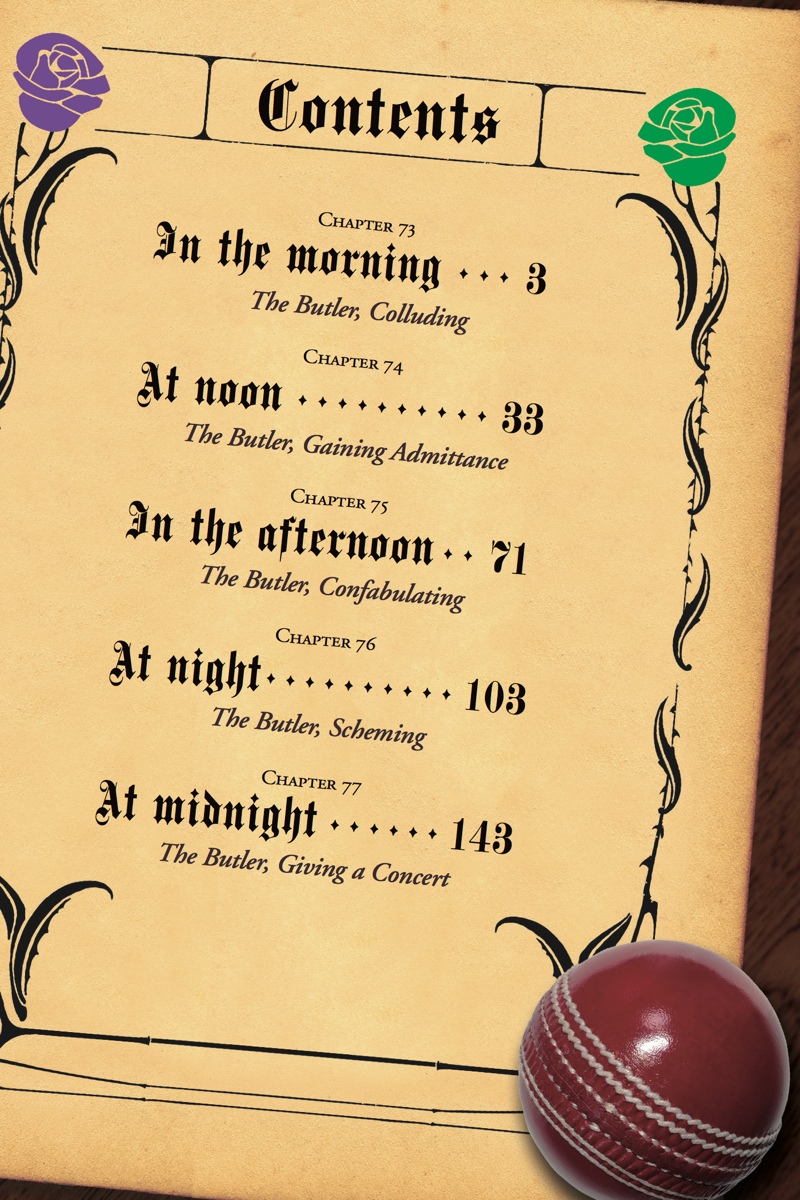 Contents
Chapter 73
In the morning ··· 3
The Butler, Colluding
Chapter 74
At noon ·········· 33
The Butler, Gaining Admittance
Chapter 75
In the afternoon ·· 71
The Butler, Confabulating
Chapter 76
At night ·········· 103
The Butler, Scheming
Chapter 77
At midnight ······ 143
The Butler, Giving a Concert